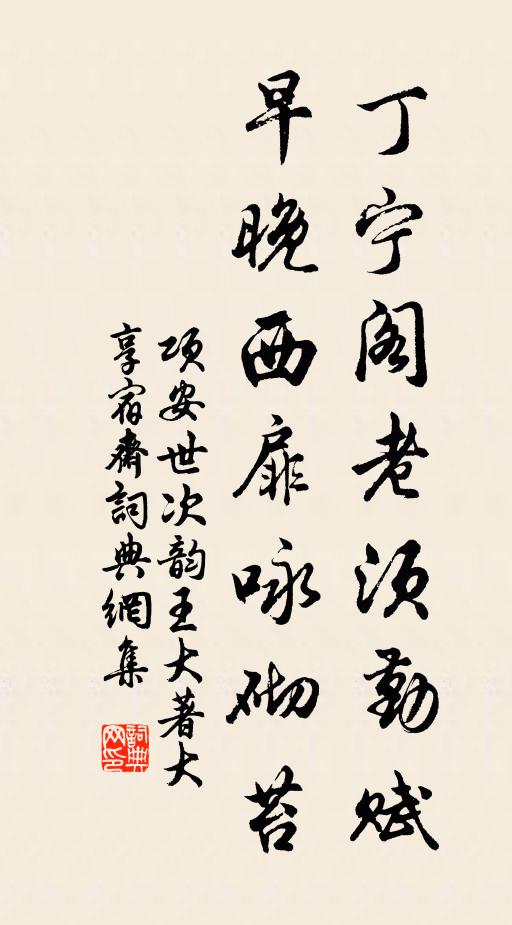 丁宁阁老须勤赋
早晚西扉咏砌苔
项安世次韵王大著大
享宿齋詞典網集
詞典网印